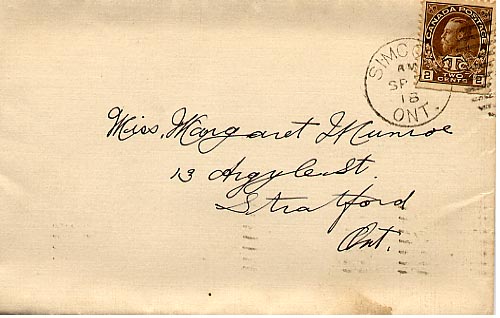 CANADA POSTAGE
1Tc
2 TWO CENTS 2
SIMCO
AM
SP
18
ONT.
Miss. Margaret Munroe
13 Argyle St.
Stratford
Ont.